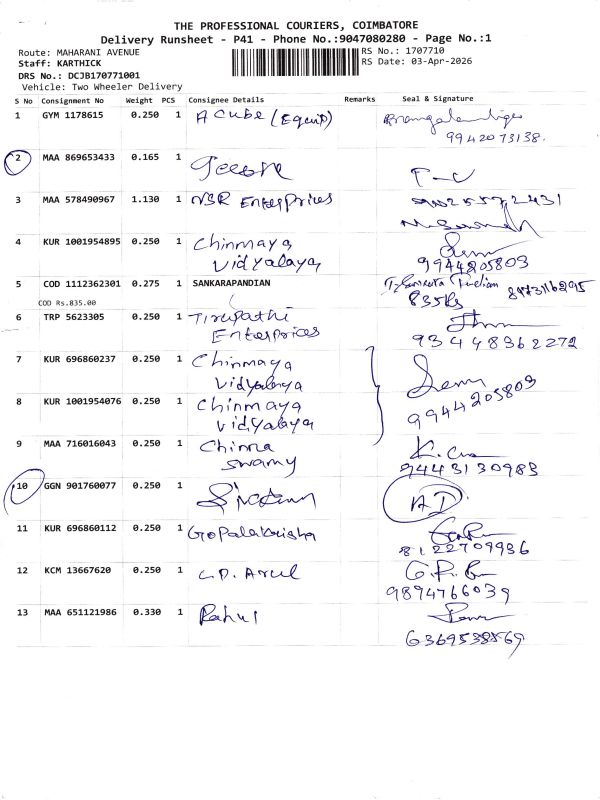 THE PROFESSIONAL COURIERS, COIMBATORE
Delivery Runsheet - P41 - Phone No.:9047080280 - Page No.:1
Route: MAHARANI AVENUE RS No.: 1707710
Staff: KARTHICK RS Date: 03-Apr-2026
DRS No.: DCJB170771001
Vehicle: Two Wheeler Delivery
S No Consignment No Weight PCS Consignee Details Remarks Seal & Signature
1 GYM 1178615 0.250 1 A Cube (Equip)
9942073138.
2 MAA 869653433 0.165 1
3 MAA 578490967 1.130 1 NSR Enterprices
4 KUR 1001954895 0.250 1 Chinmaya
Vidyalaya 9944205803
5 COD 1112362301 0.275 1 SANKARAPANDIAN
COD Rs.835.00 835Rs
6 TRP 5623305 0.250 1 Tirupathi
Enterprices 93448362272
7 KUR 696860237 0.250 1 Chinmaya
Vidyalaya
8 KUR 1001954076 0.250 1 Chinmaya 9944205803
Vidyalaya
9 MAA 716016043 0.250 1 Chinna
Swamy 9443130983
10 GGN 901760077 0.250 1 AD
11 KUR 696860112 0.250 1 Gopalakrisha
8122709936
12 KCM 13667620 0.250 1 C.P. Arul
9894766039
13 MAA 651121986 0.330 1 Rahul
6369538569